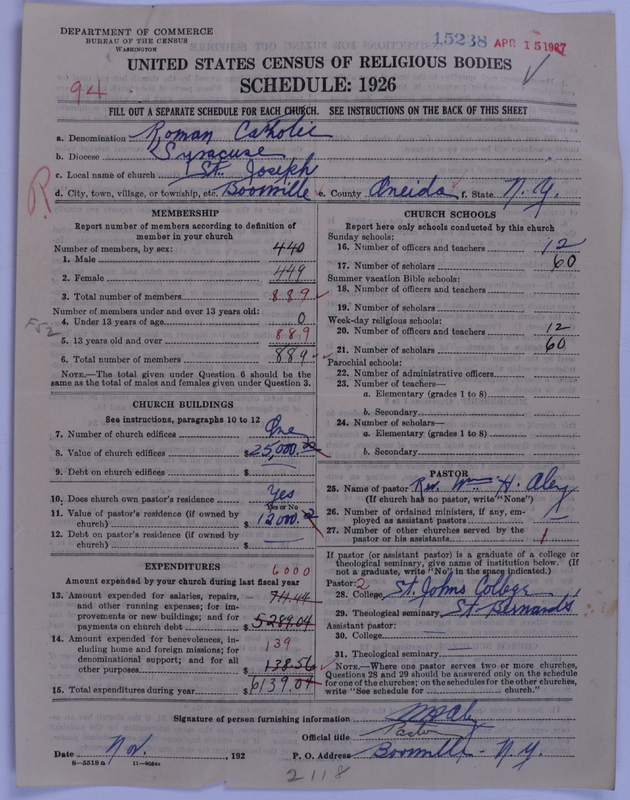 DEPARTMENT OF COMMERCE
BUREAU OF THE CENSUS
WASHINGTON
15238 APR 15 1927
UNITED STATES CENSUS OF RELIGIOUS BODIES
SCHEDULE: 1926
94
FILL OUT A SEPARATE SCHEDULE FOR EACH CHURCH. SEE INSTRUCTIONS ON THE BACK OF THIS SHEET
a. Denomination Roman Catholic
b. Diocese Syracuse
c. Local name of church St. Joseph
R
d. City, town, village, or township, etc. Boonville e. County Oneida f. State N.Y.
MEMBERSHIP
Report number of members according to definition of
member in your church
Number of members, by sex:
1. Male 440
2. Female 449
3. Total number of members 889
Number of members under and over 13 years old:
4. Under 13 years of age 0
5. 13 years old and over 889
6. Total number of members 889
NOTE.—The total given under Question 6 should be
same as the total of males and females given under Question 3.
CHURCH BUILDINGS
See instructions, paragraphs 10 to 12
7. Number of church edifices One
8. Value of church edifices $25,000.
9. Debt on church edifices $
10. Does church own pastor's residence Yes
Yes or No
11. Value of pastor's residence (if owned by
church) $12000.
12. Debt on pastor's residence (if owned by
church) $
EXPENDITURES 6000
Amount expended by your church during last fiscal year
13. Amount expended for salaries, repairs,
and other running expenses; for im-
provements or new buildings; and for
payments on church debt $5289.04
14. Amount expended for benevolences, in- 139
cluding home and foreign missions; for
denominational support; and for all
other purposes $138.56
15. Total expenditures during year $6139.04
CHURCH SCHOOLS
Report here only schools conducted by this church
Sunday schools:
16. Number of officers and teachers 12
17. Number of scholars 60
Summer vacation Bible schools:
18. Number of officers and teachers
19. Number of scholars
Week-day religious schools:
20. Number of officers and teachers 12
21. Number of scholars 60
Parochial schools:
22. Number of administrative officers
23. Number of teachers—
a. Elementary (grades 1 to 8)
b. Secondary
24. Number of scholars—
a. Elementary (grades 1 to 8)
b. Secondary
PASTOR
25. Name of pastor Rev. Wm. H. Aley
(If church has no pastor, write "None")
26. Number of ordained ministers, if any, em-
ployed as assistant pastors
27. Number of other churches served by the
pastor or his assistants 1
If pastor (or assistant pastor) is a graduate of a college or
theological seminary, give name of institution below. (If
not a graduate, write "No" in the space indicated.)
Pastor: 2
28. College St. Johns College
29. Theological seminary St. Bernards
Assistant pastor:
30. College
31. Theological seminary
NOTE.—Where one pastor serves two or more churches,
Questions 28 and 29 should be answered only on the schedule
for one of the churches; on the schedules for the other churches,
write "See schedule for church."
Signature of person furnishing information
Official title Pastor
Date Nov. , 192
P. O. Address Boonville - N.Y.
8-5518a
2118